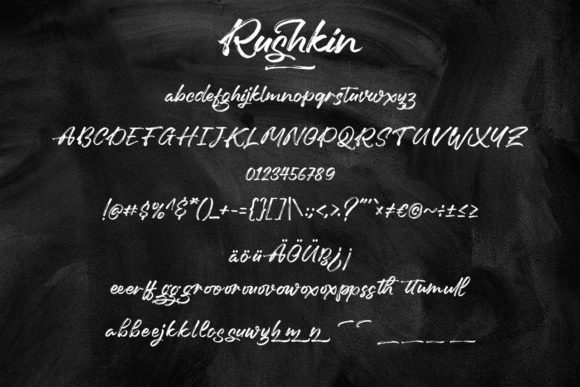 Rushkin
abcdefghijklmnopqrstuvwxyz
ABCDEFGHIJKLMNOPQRSTUVWXYZ
0123456789
!@#$%^&*()_+-={}[]|\:;<,>.?"'`×≠€©~÷±≤≥
äöüÄÖÜßij
eeerff gggroororuovowoxoxppssth ttumull
abbeejkkllossuwyhmn